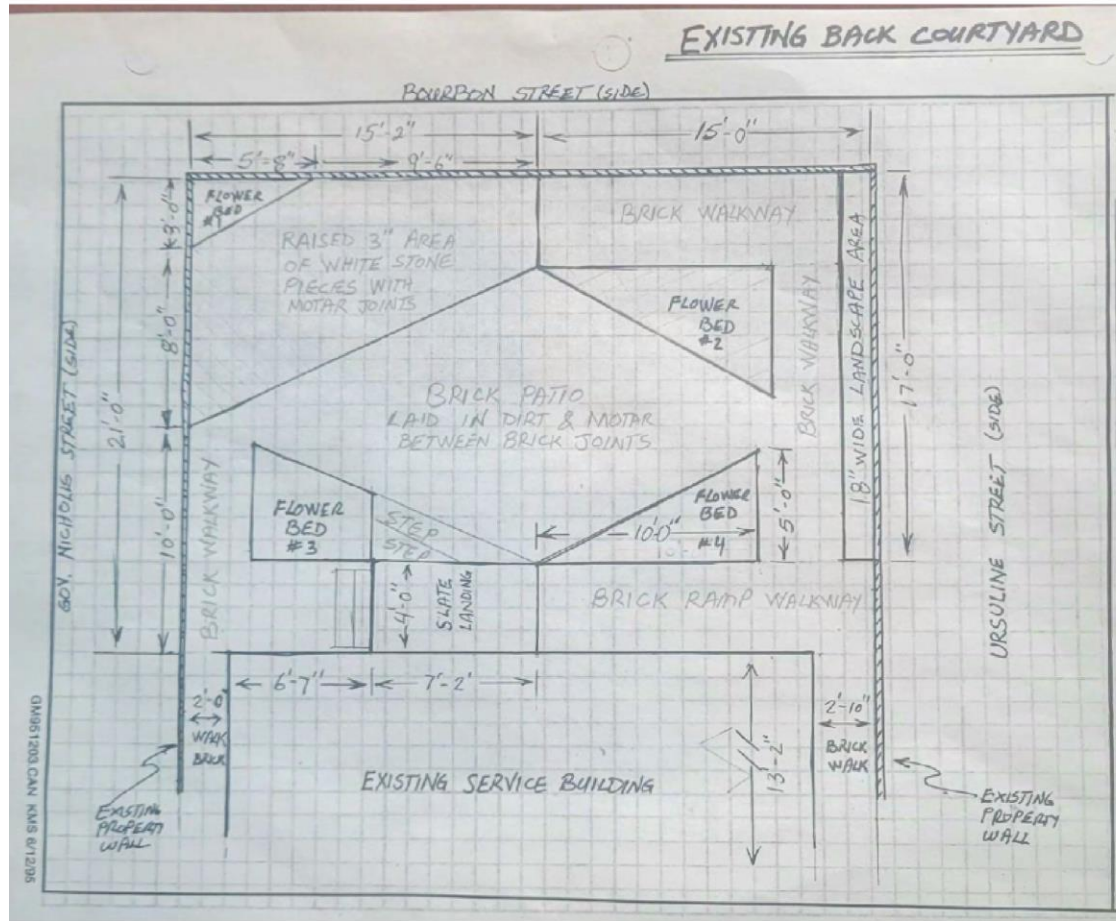 EXISTING BACK COURTYARD
BOURBON STREET (SIDE)
15'-2"
15'-0"
5'-8"
9'-6"
FLOWER
BED
#1
*3'-0"
RAISED 3" AREA
OF WHITE STONE
PIECES WITH
MOTAR JOINTS
BRICK WALKWAY
FLOWER
BED
#2
BRICK WALKWAY
18" WIDE LANDSCAPE AREA
17'-0"
URSULINE STREET (SIDE)
GOV. NICHOLLS STREET (SIDE)
21'-0"
8'-0"
10'-0"
BRICK WALKWAY
BRICK PATIO
LAID IN DIRT & MOTAR
BETWEEN BRICK JOINTS
FLOWER
BED
#3
STEP
STEP
FLOWER
BED
#4
10'-0"
5'-0"
4'-0"
SLATE
LANDING
BRICK RAMP WALKWAY
6'-7"
7'-2'
2'-0"
WALK
BRICK
2'-10"
BRICK
WALK
13'-2"
EXISTING SERVICE BUILDING
EXISTING
PROPERTY
WALL
EXISTING
PROPERTY
WALL
GM961203.CAN KMS 6/12/96